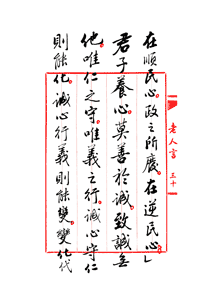 老人言 三十
在順民心。政之所廢。在逆民心」
君子養心莫善於誠。致誠無
他。唯仁之守。唯義之行。誠心守仁
則能化。誠心行義則能變。變化代